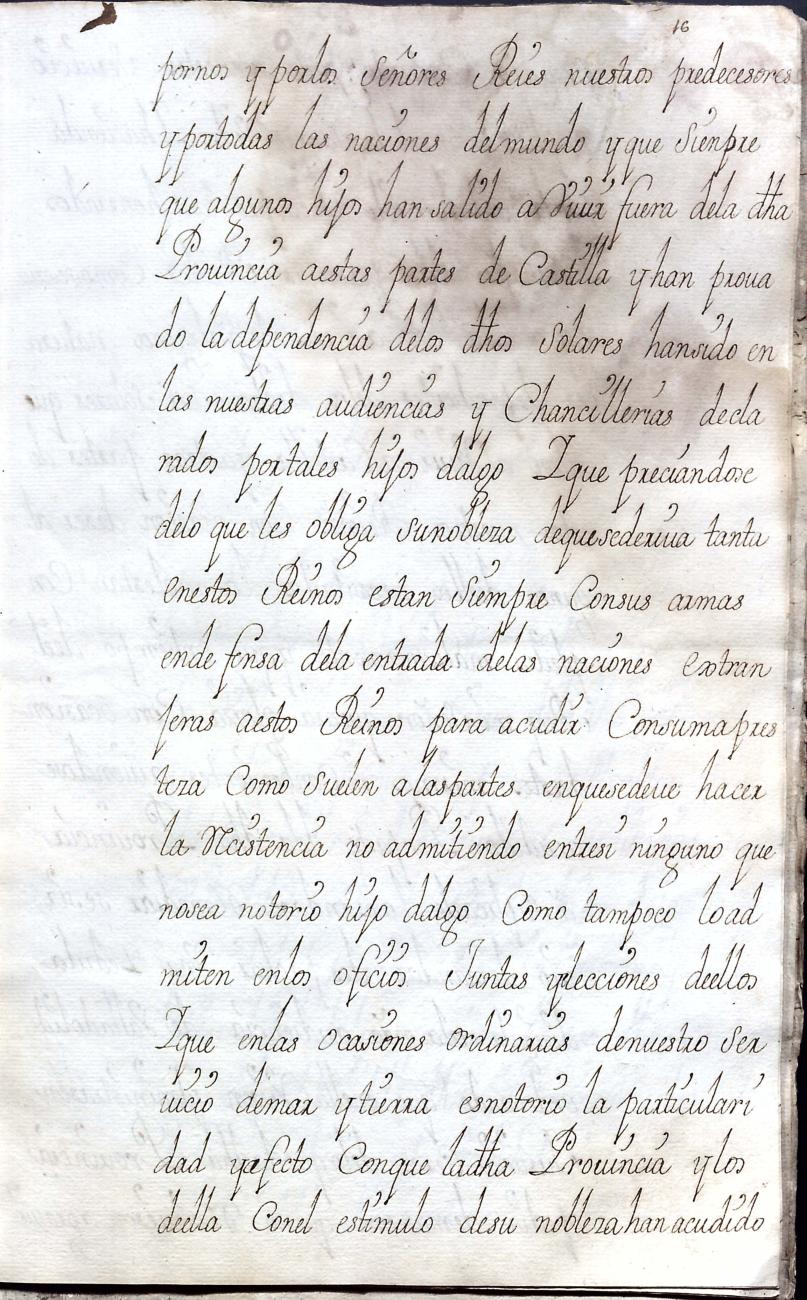 16
pornos y porlos Señores Reies nuestros predecesores
y portodas las naciones delmundo y que Sienpre
que algunos hijos han salido a Viuir fuera dela dha
Prouincia aestas partes de Castilla y han proua
do la dependencia delos dhos Solares hansido en
las nuestras audiencias y Chancillerias decla
rados portales hijos dalgo Ique preciandose
delo que les obliga sunobleza dequesederiua tanta
enestos Reinos estan Siempre Consus armas
ende fensa dela entrada delas naciones extran
jeras aestos Reinos para acudir Consuma pres
teza Como Suelen alaspartes enquesedeue hacer
la Recistencia no admitiendo entresi ninguno que
nosea notorio hijo dalgo Como tampoco load
miten enlos oficios Juntas yelecciones deellos
Ique enlas ocasiones ordinarias denuestro Ser
uicio demar y tierra esnotorio la particulari
dad yafecto Conque ladha Prouincia y los
deella Conel estimulo desu nobleza han acudido